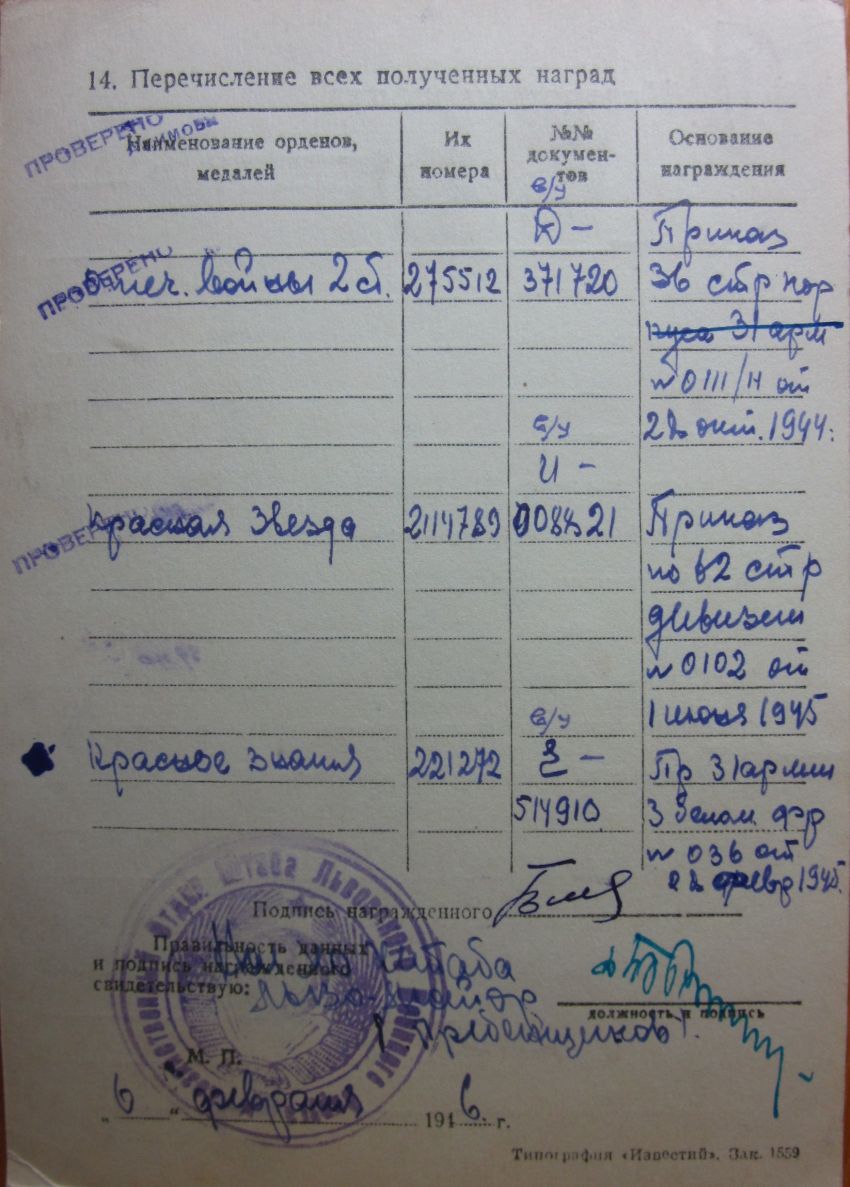 14. Перечисление всех полученных наград
ПРОВЕРЕНО
Наименование орденов, медалей
Их номера
№№ документов
Основание награждения
в/у
Д — Приказ
ПРОВЕРЕНО
Отеч. войны 2 ст. 275512 371720 36 стр кор
пуса 31 арм
№ 0111/н от
окт. 1944.
в/у
И —
ПРОВЕРЕНО
Красная Звезда 2114789 Приказ
по 62 стр
дивизии
№ 0102 от
1 июня 1945
в/у
Красное знамя 221272 З — Пр 31 армии
514910 3 белом. фр
№ 036 от
февр 1945.
Подпись награжденного
Правильность данных
и подпись награжденного
свидетельствую:
штаба
майор
Гребенщиков
должность и подпись
М. П.
„6“ февраля 1946. г.
Типография «Известий». Зак. 1559